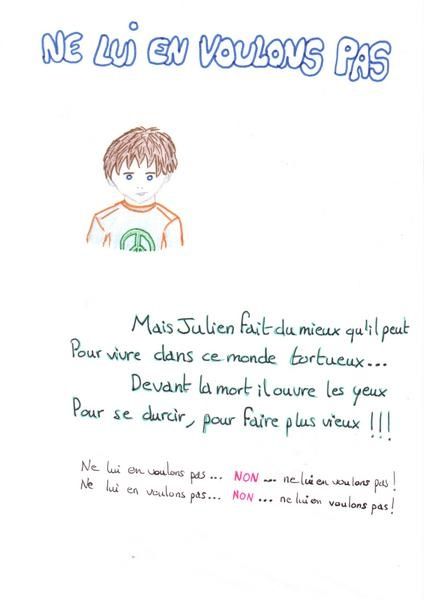 NE LUI EN VOULONS PAS
Mais Julien fait du mieux qu'il peut
Pour vivre dans ce monde tortueux...
Devant la mort il ouvre les yeux
Pour se durcir, pour faire plus vieux !!!
Ne lui en voulons pas... NON ... ne lui en voulons pas !
Ne lui en voulons pas... NON ... ne lui en voulons pas !